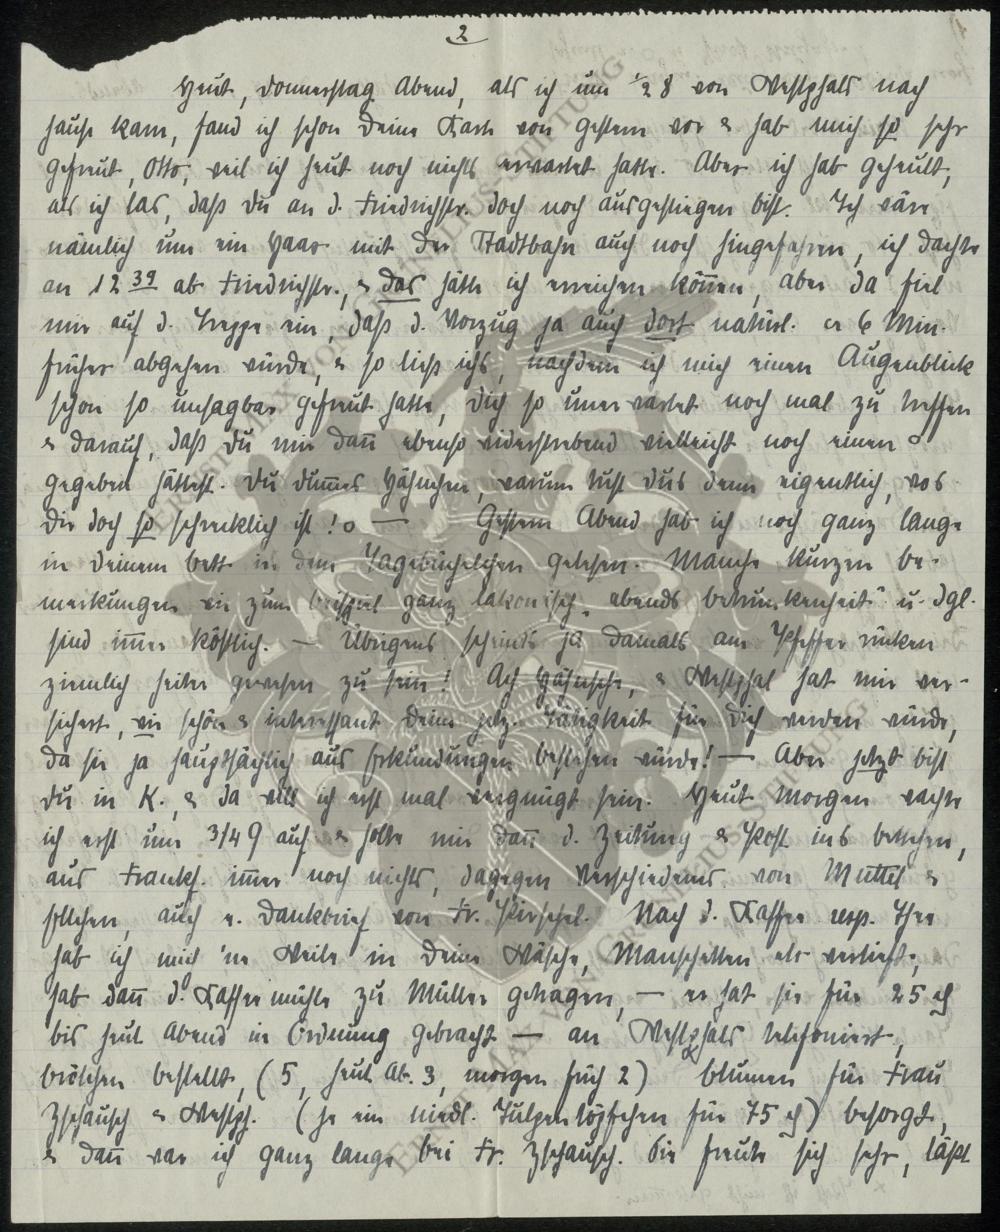 2
Heut, Donnerstag Abend, als ich um ½ 8 von Westphals nach
Hause kam, fand ich schon Deine Karte von gestern vor & hab mich so sehr
gefreut, Otto, weil ich heut noch nichts erwartet hatte. Aber ich hab geheult,
als ich las, daß Du an d. Friedrichstr. doch noch ausgestiegen bist. Ich wäre
nämlich um ein Haar mit der Stadtbahn auch noch hingefahren, ich dachte
an 12 39 ab Friedrichstr., & das hätte ich erreichen können, aber da fiel
mir auf d. Treppe ein, daß d. Vorzug ja auch dort natürl. ca 6 Min.
früher abgehen würde, & so ließ ichs, nachdem ich mich einen Augenblick
schon so unsagbar gefreut hatte, Dich so unerwartet noch mal zu treffen
& darauf, daß Du mir dann ebenso widerstrebend vielleicht noch einen o
gegeben hättest. Du dummes Hähnchen, warum tust Dus denn eigentlich, wos
Dir doch so schrecklich ist! o — Gestern Abend hab ich noch ganz lange
in Deinem Bett in dem Tagebüchelchen gelesen. Manche kurzen Be-
merkungen wie zum Beispiel ganz lakonisch „abends Betrunkenheit" u. dgl.
sind immer köstlich. — Übrigens scheints ja damals am Pfefferrücken
ziemlich heiter gewesen zu sein! Ach Hähnsche, & Westphal hat mir ver-
sichert, wie schön & interessant Deine jetz. Tätigkeit für Dich werden würde,
da sie ja hauptsächlich aus Erkundungen bestehen würde! — Aber jetzt bist
Du in K., & da will ich erst mal vergnügt sein. Heut Morgen wachte
ich erst um 3/4 9 auf & holte mir dann d. Zeitung & Post ins Bettchen,
aus Frankf. immer noch nichts, dagegen Verschiedenes von Muttel &
Ellchen, auch e. Dankbrief von Fr. Pirschel. Nach d. Kaffee resp. Thee
hab ich mich 'ne Weile in Deine Wäsche, Manschetten etc vertieft,
hab dann d. Kaffeemühle zu Müller getragen, — er hat sie für 25 ₰
bis heut Abend in Ordnung gebracht — an Westphals telefoniert,
Brötchen bestellt, (5, heut Ab. 3, morgen früh 2) Blumen für Frau
Zschausch & Westph. (je ein niedl. Tulpentöpfchen für 75 ₰) besorgt,
& dann war ich ganz lange bei Fr. Zschausch. Sie freute sich sehr, läßt